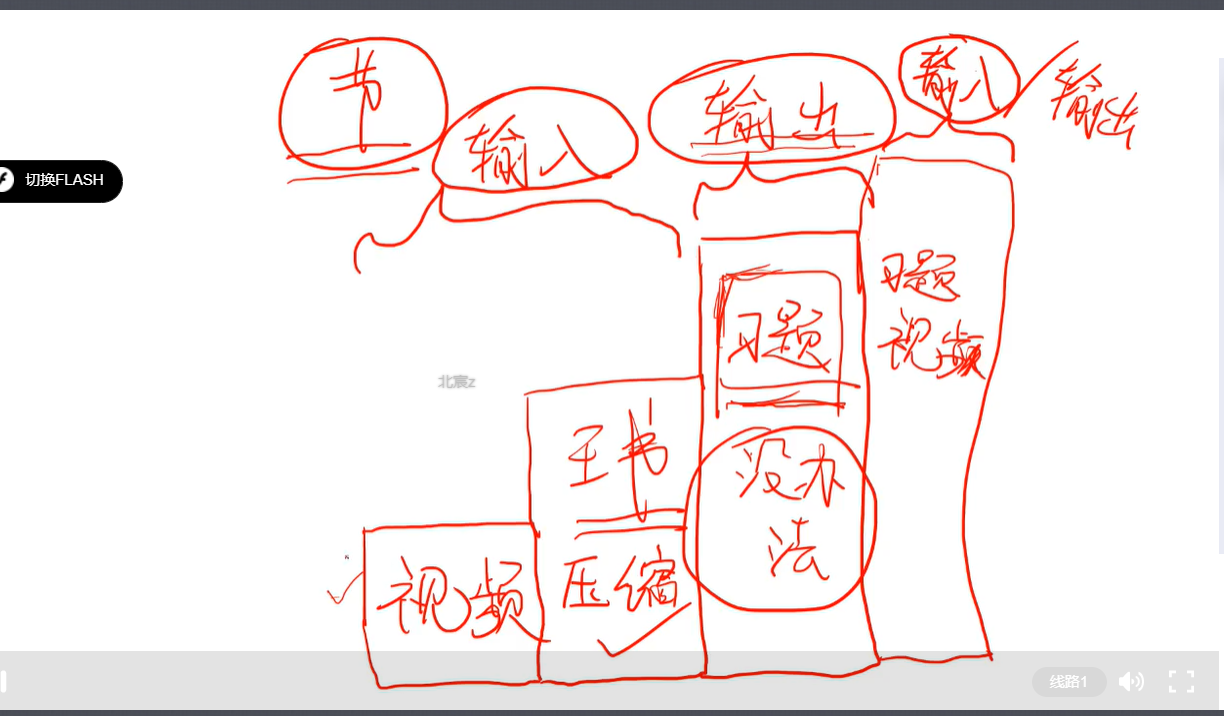 节
输入
输出
输入
输出
切换FLASH
习题
习题
视频
北宸z
王书
没办
法
视频
压缩
线路1